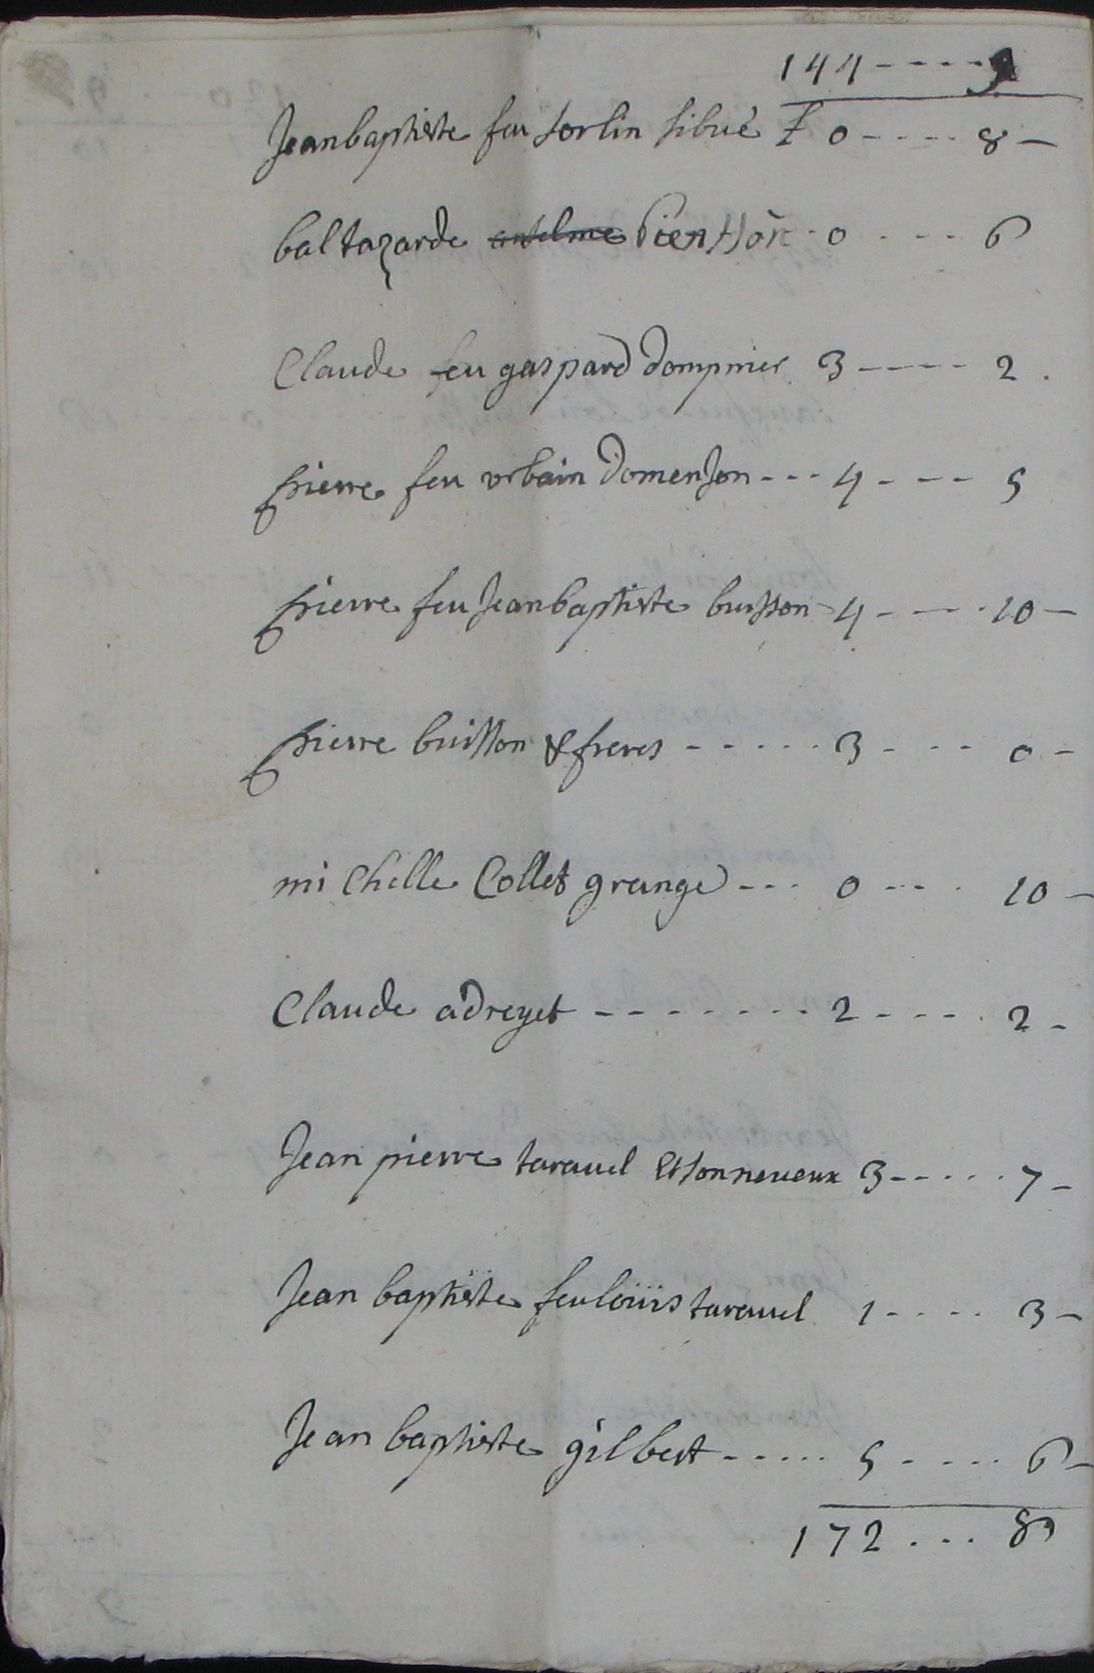 144 ---- 9
Jean baptiste feu sorlin sibué £ 0 ---- 8 -
baltazarde anselme 0 --- 6
Claude feu gaspard dompnier 3 ----- 2 .
pierre feu urbain domenson --- 4 --- 5
pierre feu Jean baptiste buisson 4 ---- 10 -
pierre buisson & freres ------ 3 ---- 0 -
mi chelle Collet grange --- 0 --- 10 -
Claude adreyet -------- 2 ---- 2 -
Jean pierre taravel et son neveux 3 ----- 7 -
Jean baptiste feu loüis taravel 1 ---- 3 -
Jean baptiste gilbert ----- 5 ---- 6 -
172 ... 8